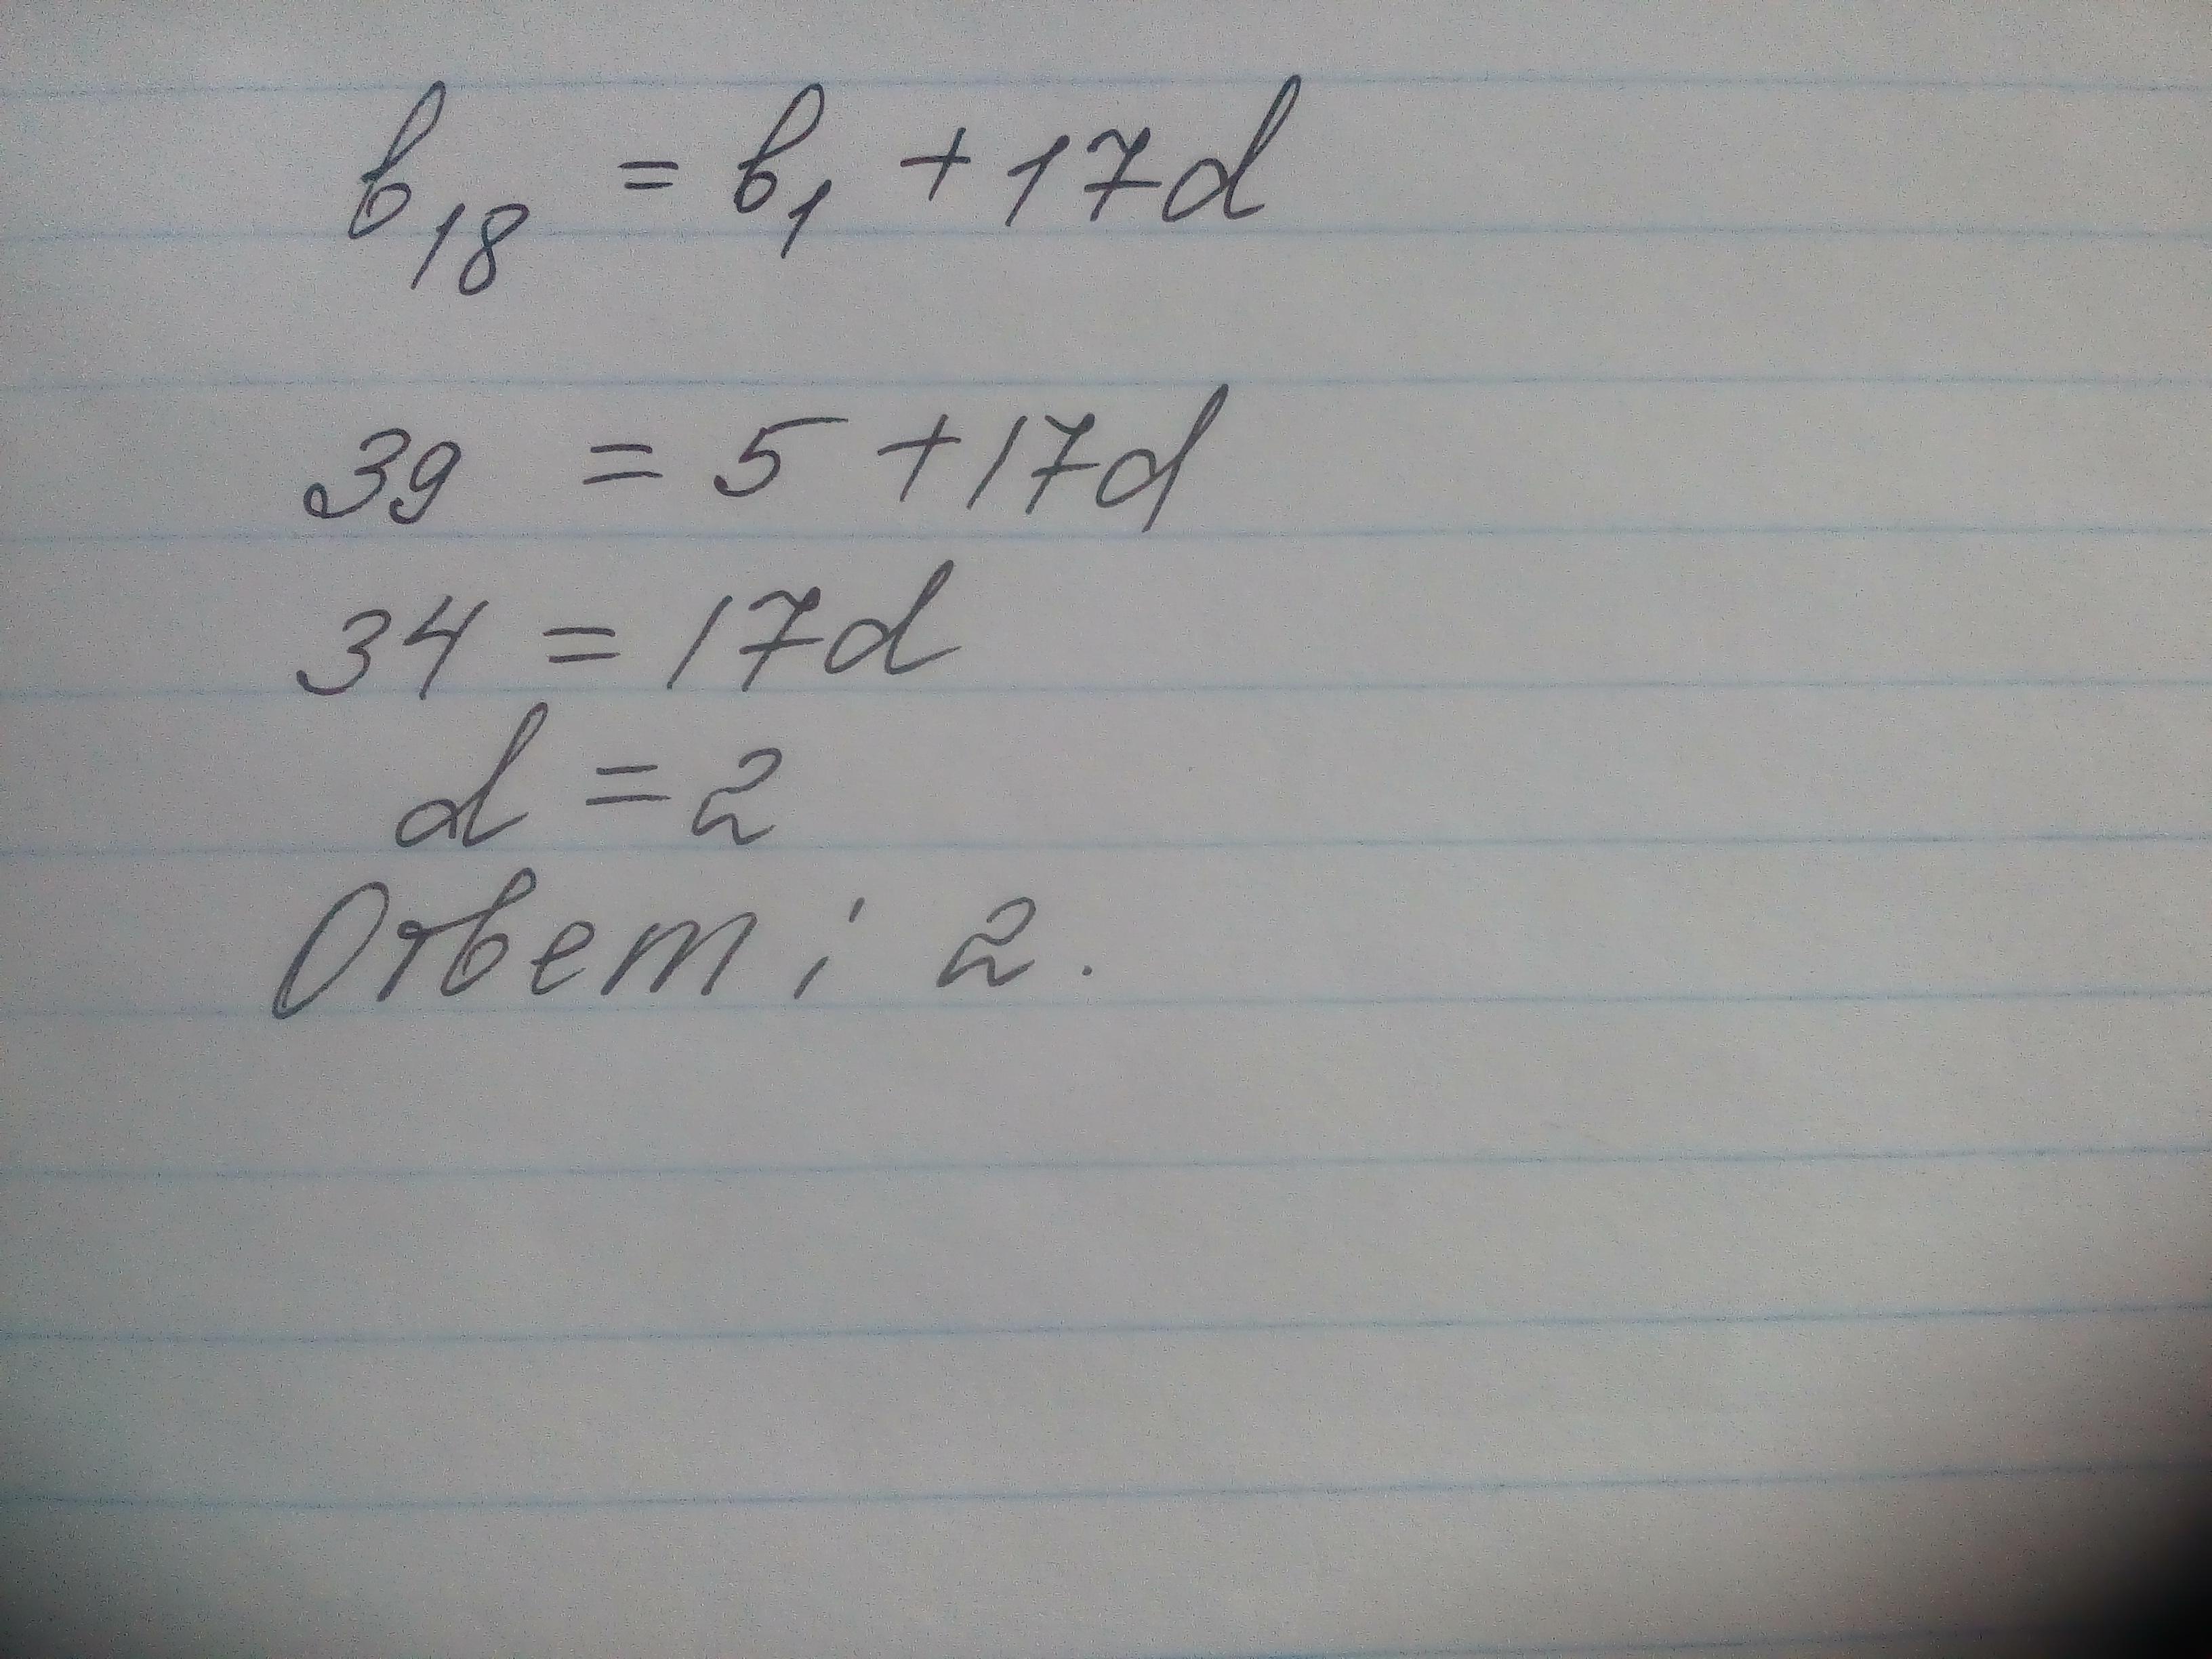 b₁₈ = b₁ + 17d
39 = 5 + 17d
34 = 17d
d = 2
Ответ: 2.